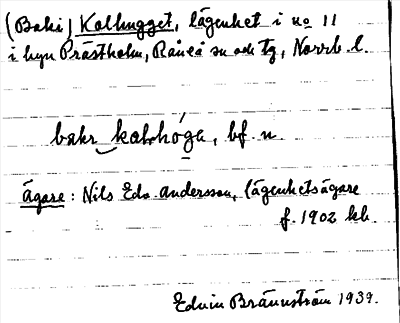 (Baki) Kolhugget, lägenhet i no 11
i byn Prästholm, Råneå sn och tg, Norrb. l.
bakɩ kolhóga, bf. n.
Ägare: Nils Edv. Andersson, lägenhetsägare
f. 1902 hb.
Edvin Brännström 1939.